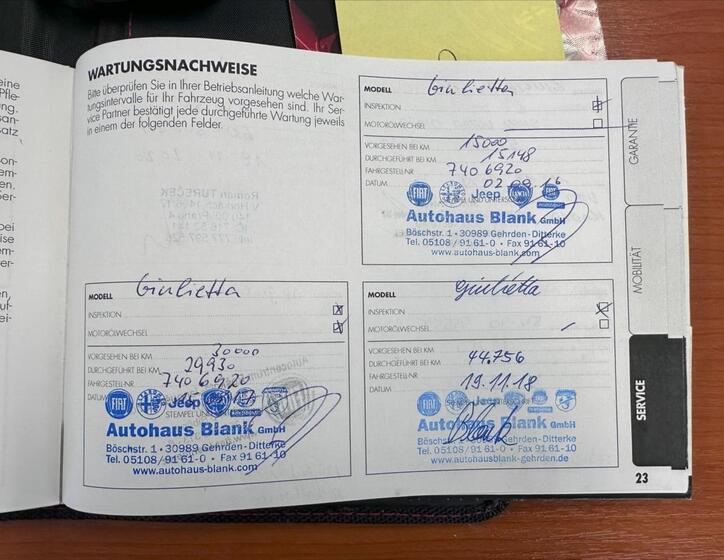 WARTUNGSNACHWEISE
Bitte überprüfen Sie in Ihrer Betriebsanleitung welche War-
tungsintervalle für Ihr Fahrzeug vorgesehen sind. Ihr Ser-
vice Partner bestätigt jede durchgeführte Wartung jeweils
in einem der folgenden Felder.
MODELL Giulietta
INSPEKTION
MOTORÖLWECHSEL
VORGESEHEN BEI KM 15000
DURCHGEFÜHRT BEI KM 15148
FAHRGESTELL-NR. 7406920
DATUM 02.09.16
FIAT Jeep LANCIA
Autohaus Blank GmbH
Böschstr. 1 • 30989 Gehrden - Ditterke
Tel. 05108 / 91 61-0 • Fax 91 61-10
www.autohaus-blank.com
MODELL Giulietta
INSPEKTION X
MOTORÖLWECHSEL X
VORGESEHEN BEI KM 30000
DURCHGEFÜHRT BEI KM 29930
FAHRGESTELL-NR. 7406920
DATUM
FIAT Jeep
STEMPEL UND
Autohaus Blank GmbH
Böschstr. 1 • 30989 Gehrden - Ditterke
Tel. 05108 / 91 61-0 • Fax 91 61-10
www.autohaus-blank.com
MODELL Giulietta
INSPEKTION X
MOTORÖLWECHSEL
VORGESEHEN BEI KM
DURCHGEFÜHRT BEI KM 44.756
FAHRGESTELL-NR.
DATUM 19.11.18
FIAT Jeep
Autohaus Blank GmbH
Gehrden - Ditterke
Tel. 05108 / 91 61-0 • Fax 91 61-10
www.autohausblank-gehrden.de
GARANTIE
MOBILITÄT
SERVICE
23